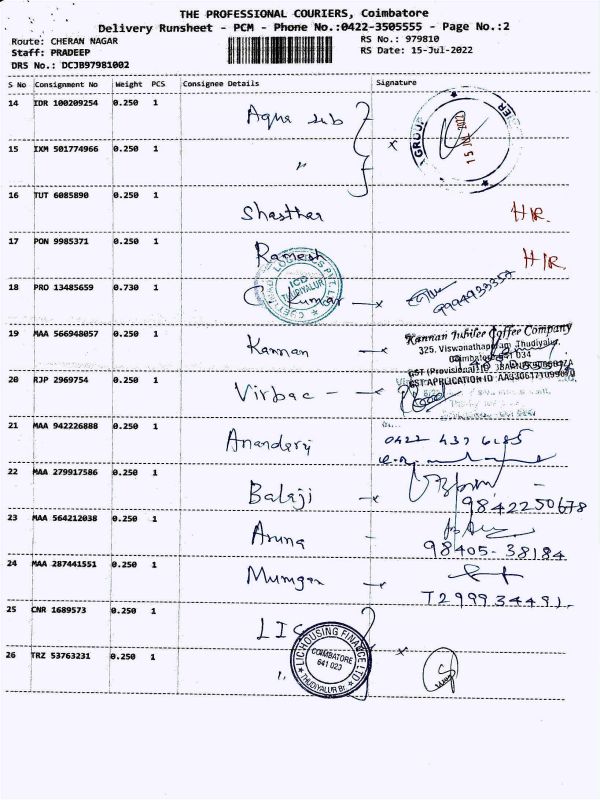 THE PROFESSIONAL COURIERS, Coimbatore
Delivery Runsheet - PCM - Phone No.:0422-3505555 - Page No.:2
Route: CHERAN NAGAR RS No.: 979810
Staff: PRADEEP RS Date: 15-Jul-2022
DRS No.: DCJB97981002
S No Consignment No Weight PCS Consignee Details Signature
14 IDR 100209254 0.250 1 Aqua sub
GROUP
15 IXM 501774966 0.250 1 "
16 TUT 6085890 0.250 1 Shasthar H/R.
17 PON 9985371 0.250 1 Ramesh H/R.
18 PRO 13485659 0.730 1 C Kumar
ICD
THUDIYALUR
19 MAA 566948057 0.250 1 Kannan
Kannan Jubilee Coffee Company
325, Viswanathapuram, Thudiyalur,
Coimbatore 641 034
20 RJP 2969754 0.250 1 Virbac -
21 MAA 942226888 0.250 1 Anandaraj 0422 437 6185
22 MAA 279917586 0.250 1 Balaji 9842250678
23 MAA 564212038 0.250 1 Aruna - 98405-38184
24 MAA 287441551 0.250 1 Murugan T299934491.
25 CNR 1689573 0.250 1 LIC
LIC HOUSING FINANCE LTD
COIMBATORE
641 023
THUDIYALUR Br.
26 TRZ 53763231 0.250 1 "